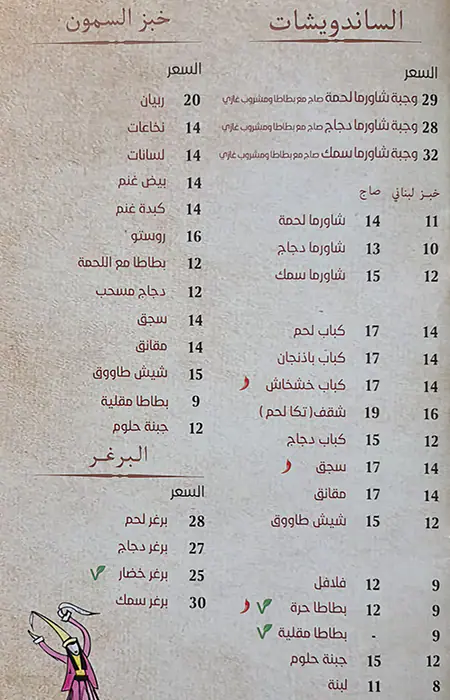 الساندويشات
السعر
وجبة شاورما لحمة صاج مع بطاطا ومشروب غازي 29
وجبة شاورما دجاج صاج مع بطاطا ومشروب غازي 28
وجبة شاورما سمك صاج مع بطاطا ومشروب غازي 32
خبز لبناني صاج
شاورما لحمة 14 11
شاورما دجاج 13 10
شاورما سمك 15 12
كباب لحم 17 14
كباب باذنجان 17 14
كباب خشخاش 17 14
شقف (تكا لحم) 19 16
كباب دجاج 15 12
سجق 17 14
مقانق 17 14
شيش طاووق 15 12
فلافل 12 9
بطاطا حرة 12 9
بطاطا مقلية - 9
جبنة حلوم 15 12
لبنة 11 8
خبز السمون
السعر
ربيان 20
نخاعات 14
لسانات 14
بيض غنم 14
كبدة غنم 14
روستو 16
بطاطا مع اللحمة 12
دجاج مسحب 12
سجق 14
مقانق 14
شيش طاووق 15
بطاطا مقلية 9
جبنة حلوم 12
البرغر
السعر
برغر لحم 28
برغر دجاج 27
برغر خضار 25
برغر سمك 30